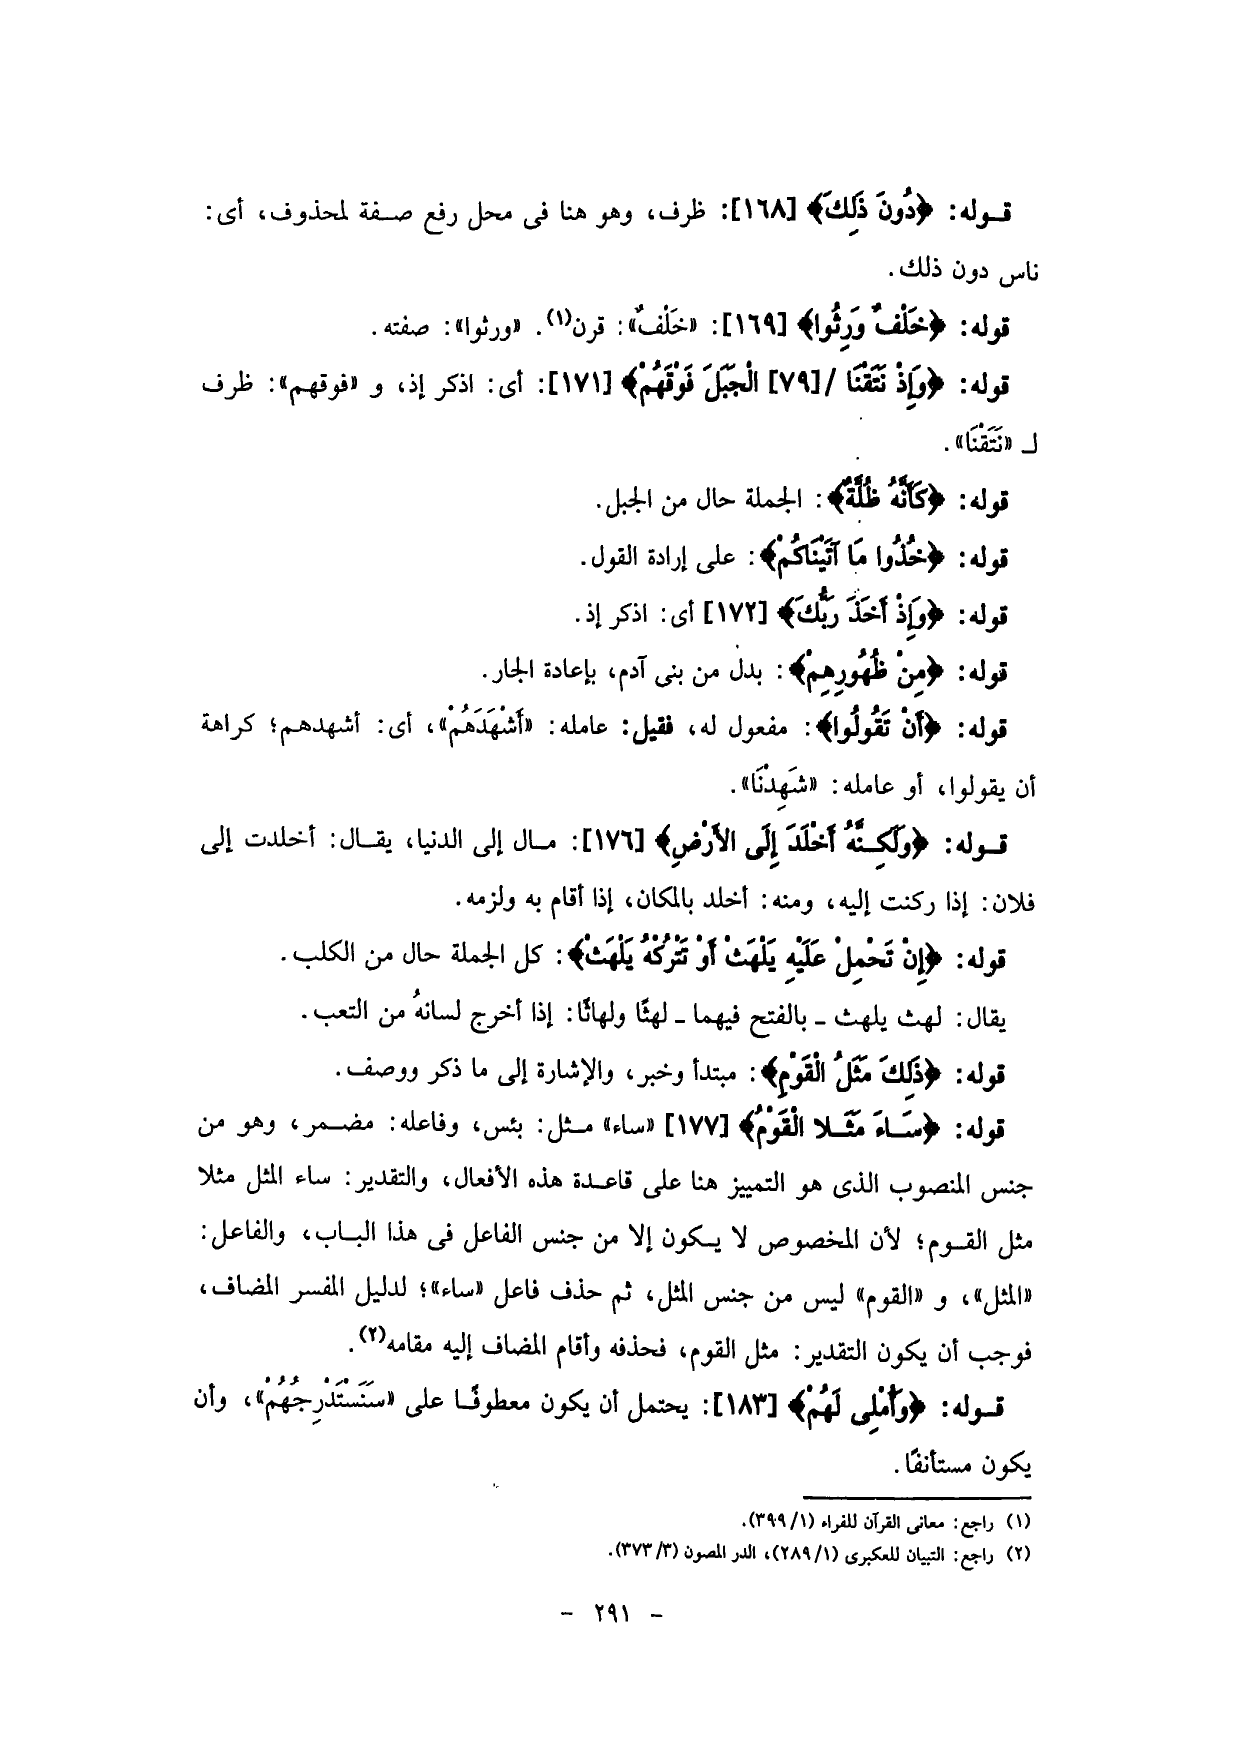 قوله: ﴿دُونَ ذَلِكَ﴾ [١٦٨]: ظرف، وهو هنا فى محل رفع صفة لمحذوف، أى:
ناس دون ذلك.
قوله: ﴿خَلْفٌ وَرِثُوا﴾ [١٦٩]: «خَلْفٌ»: قرن(١). «ورثوا»: صفته.
قوله: ﴿وَإِذْ نَتَقْنَا /[٧٩] الْجَبَلَ فَوْقَهُمْ﴾ [١٧١]: أى: اذكر إذ، و «فوقهم»: ظرف
لـ «نَتَقْنَا».
قوله: ﴿كَأَنَّهُ ظُلَّةٌ﴾: الجملة حال من الجبل.
قوله: ﴿خُذُوا مَا آتَيْنَاكُمْ﴾: على إرادة القول.
قوله: ﴿وَإِذْ أَخَذَ رَبُّكَ﴾ [١٧٢] أى: اذكر إذ.
قوله: ﴿مِنْ ظُهُورِهِمْ﴾: بدل من بنى آدم، بإعادة الجار.
قوله: ﴿أَنْ تَقُولُوا﴾: مفعول له، فقيل: عامله: «أَشْهَدَهُمْ»، أى: أشهدهم؛ كراهة
أن يقولوا، أو عامله: «شَهِدْنَا».
قوله: ﴿وَلَكِنَّهُ أَخْلَدَ إِلَى الأَرْضِ﴾ [١٧٦]: مال إلى الدنيا، يقال: أخلدت إلى
فلان: إذا ركنت إليه، ومنه: أخلد بالمكان، إذا أقام به ولزمه.
قوله: ﴿إِنْ تَحْمِلْ عَلَيْهِ يَلْهَثْ أَوْ تَتْرُكْهُ يَلْهَثْ﴾: كل الجملة حال من الكلب.
يقال: لهث يلهث ـ بالفتح فيهما ـ لهثًا ولهاثًا: إذا أخرج لسانهُ من التعب.
قوله: ﴿ذَلِكَ مَثَلُ الْقَوْمِ﴾: مبتدأ وخبر، والإشارة إلى ما ذكر ووصف.
قوله: ﴿سَاءَ مَثَلا الْقَوْمُ﴾ [١٧٧] «ساء» مثل: بئس، وفاعله: مضمر، وهو من
جنس المنصوب الذى هو التمييز هنا على قاعدة هذه الأفعال، والتقدير: ساء المثل مثلا
مثل القوم؛ لأن المخصوص لا يكون إلا من جنس الفاعل فى هذا الباب، والفاعل:
«المثل»، و «القوم» ليس من جنس المثل، ثم حذف فاعل «ساء»؛ لدليل المفسر المضاف،
فوجب أن يكون التقدير: مثل القوم، فحذفه وأقام المضاف إليه مقامه(٢).
قوله: ﴿وَأُمْلِى لَهُمْ﴾ [١٨٣]: يحتمل أن يكون معطوفًا على «سَنَسْتَدْرِجُهُمْ»، وأن
يكون مستأنفًا.
(١) راجع: معانى القرآن للفراء (٣٩٩/١).
(٢) راجع: التبيان للعكبرى (٢٨٩/١)، الدر المصون (٣٧٣/٣).
- ٢٩١ -